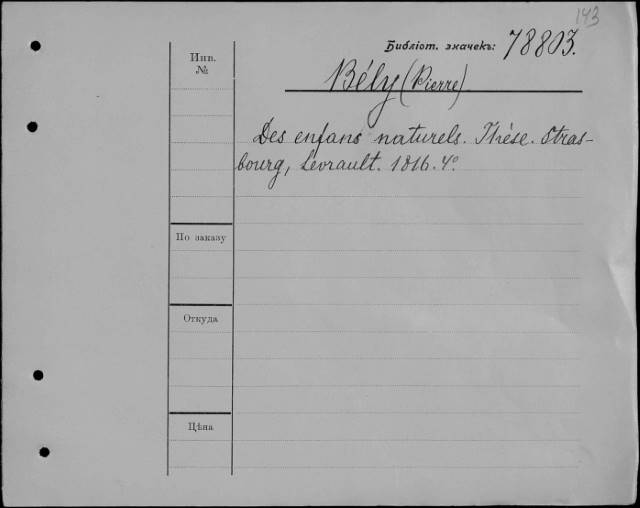 143
Библіот. значекъ: 78803.
Инв.
№
Bély (Pierre).
Des enfans naturels. Thése. Stras-
bourg, Levrault. 1816. 4°.
По заказу
Откуда
Цѣна